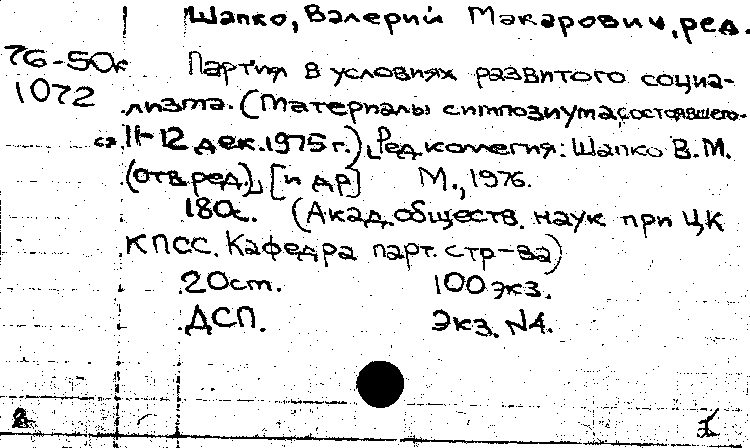 Шапко, Валерий Макарович, ред.
76-50к
1072
Партия в условиях развитого социа-
лизма. (Материалы симпозиума, состоявшего-
ся 11-12 дек. 1975 г.), Ред. коллегия: Шапко В.М.
(отв. ред.), [и др] М., 1976.
180с. (Акад. обществ. наук при ЦК
КПСС. Кафедра парт. стр-ва)
20 ст. 100 экз.
ДСП. Экз. N4.